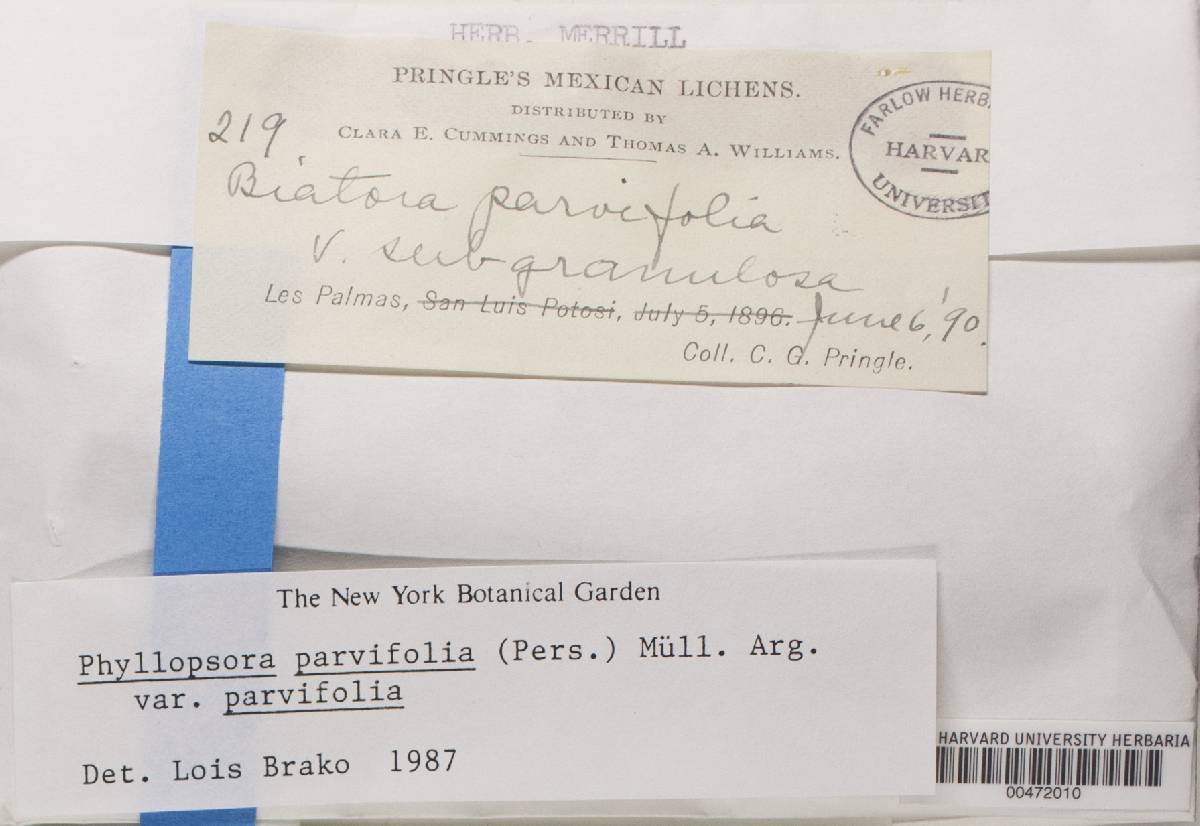 HERB. MERRILL
PRINGLE'S MEXICAN LICHENS.
DISTRIBUTED BY
CLARA E. CUMMINGS AND THOMAS A. WILLIAMS.
FARLOW HERB.
HARVAR
UNIVERSIT
219.
Biatora parvifolia
v. subgranulosa
Les Palmas, San Luis Potosi, July 5, 1896. June 6, '90.
Coll. C. G. Pringle.
The New York Botanical Garden
Phyllopsora parvifolia (Pers.) Müll. Arg.
var. parvifolia
Det. Lois Brako 1987
HARVARD UNIVERSITY HERBARIA
00472010